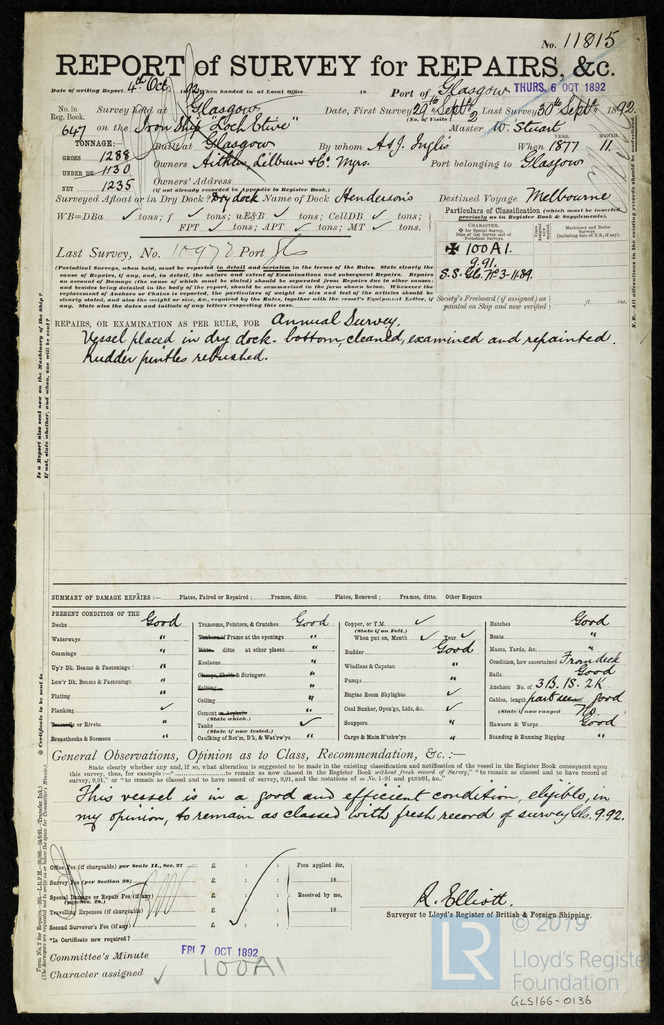 No. 11815
REPORT of SURVEY for REPAIRS, &c.
Date of writing Report 4th Oct 92 when handed in at Local Office 18 Port of Glasgow THURS, 6 OCT 1892
No. in Reg. Book. 647 Survey held at Glasgow Date, First Survey 29th Septr Last Survey 30th Septr 1892
(No. of Visits 2)
on the Iron Ship "Loch Etive" Master W. Stuart
TONNAGE:— Built at Glasgow By whom A & J. Inglis When 1877 YEAR. MONTH. 11.
GROSS 1288
UNDER DK 1130
NET 1235
Owners Aitken, Lilburn & Co. Port belonging to Glasgow
Owners' Address
(if not already recorded in Appendix to Register Book.)
Surveyed Afloat or in Dry Dock? Dry dock Name of Dock Henderson's Destined Voyage Melbourne
WB=DBa ✓ tons; f ✓ tons; uE&B ✓ tons; CellDB ✓ tons;
FPT ✓ tons; APT ✓ tons; MT ✓ tons.
Particulars of Classification (which must be inserted precisely as in Register Book & Supplements).
CHARACTER.
✠ 100A1.
9.91.
S.S. Gls. No 3-11.89.
Society's Freeboard (if assigned) as painted on Ship and now verified
Last Survey, No. 10972 Port Gls
(Periodical Surveys, when held, must be reported in detail and seriatim in the terms of the Rules. State clearly the cause of Repairs, if any, and, in detail, the nature and extent of Examinations and subsequent Repairs. Repairs on account of Damage (the cause of which must be stated) should be separated from Repairs due to other causes; and besides being detailed in the body of the report, should be summarised in the form shown below. Whenever the replacement of Anchors or Chains is reported, the particulars of weight or size and test of the articles should be clearly stated, and also the weight or size, &c., required by the Rules, together with the vessel's Equipment Letter, if any. State also the dates and initials of any letters respecting this case.
REPAIRS, OR EXAMINATION AS PER RULE, FOR Annual Survey.
Vessel placed in dry dock - bottom, cleaned, examined and repainted.
Rudder pintles rebushed.
SUMMARY OF DAMAGE REPAIRS :— Plates, Faired or Repaired ; Frames, ditto. Plates, Renewed ; Frames, ditto. Other Repairs
PRESENT CONDITION OF THE
Decks Good
Waterways "
Coamings "
Up'r Dk. Beams & Fastenings "
Low'r Dk. Beams & Fastenings "
Plating "
Planking ✓
Treenails or Rivets "
Breasthooks & Stemson "
Transoms, Pointers, & Crutches Good
Timbers of Frame at the openings "
Ditto ditto at other places "
Keelsons "
Clamps, Shelfs & Stringers "
Ceiling "
Cement or Asphalt "
(State which.)
Tanks ✓
(State if now tested.)
Caulking of Bot'm, D'k, & Wat'rw'ys "
Copper, or Y.M. ✓
(State if on Felt.)
When put on, Month ✓ Year ✓
Rudder Good
Windlass & Capstan "
Pumps "
Engine Room Skylights ✓
Coal Bunker, Open'gs, Lids, &c. ✓
Scuppers "
Cargo & Main H'tchw'ys "
Hatches Good
Boats "
Masts, Yards, &c. "
Condition, how ascertained From deck
Sails Good
Anchors No. of 3B. 1S. 2K
Cables, length part seen good
(State if now ranged No.)
Hawsers & Warps Good
Standing & Running Rigging "
General Observations, Opinion as to Class, Recommendation, &c. :—
State clearly whether any and, if so, what alteration is suggested to be made in the existing classification and notification of the vessel in the Register Book consequent upon this survey, thus, for example:—"to remain as now classed in the Register Book without fresh record of Survey," "to remain as classed and to have record of survey, 9,91," or "to remain as classed and to have record of survey, 9,91, and the notations of ss No. 1-91 and ptND91, &c."
This vessel is in a good and efficient condition, eligible, in
my opinion, to remain as classed with fresh record of survey Gls. 9.92.
Office Fee (if chargeable) per Scale II., Sec. 27 £ : :
Survey Fee (per Section 28) £ : :
Special Damage or Repair Fee (if any) (per Sec. 28.) £ : :
Travelling Expenses (if chargeable) £ : :
Second Surveyor's Fee (if any) £ : :
Fees applied for, 18
Received by me, 18
R. Elliott.
Surveyor to Lloyd's Register of British & Foreign Shipping.
*Is Certificate now required?
Committee's Minute FRI 7 OCT 1892
Character assigned ✓ 100A1
© 2019
LR Lloyd's Register Foundation
GLS166-0136